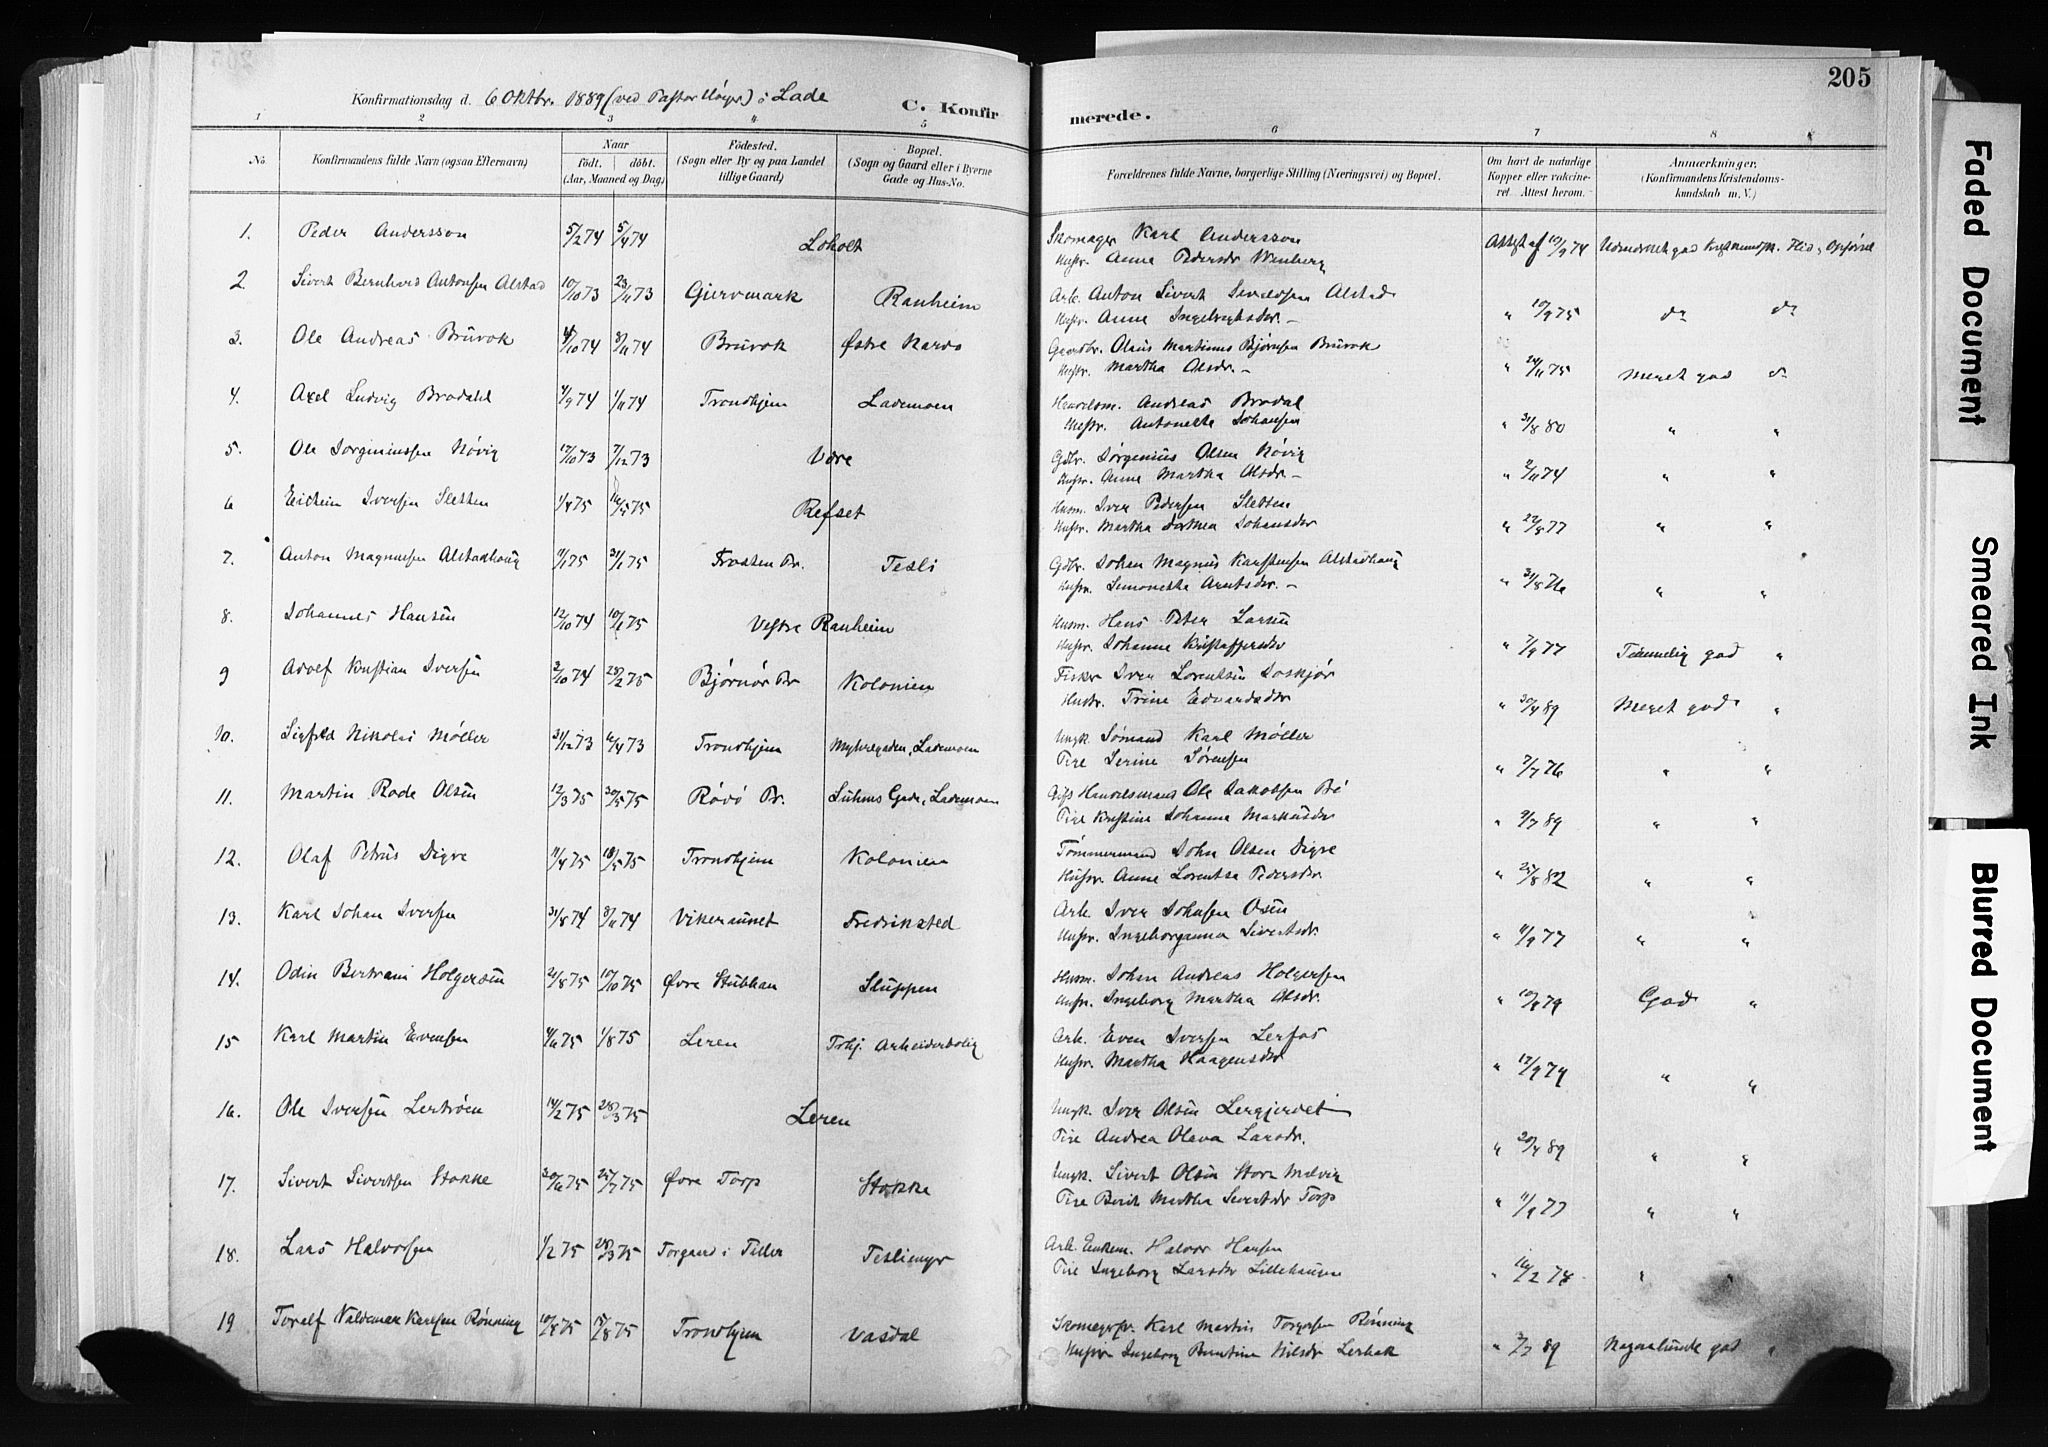 205
Konfirmationsdag d. 6 Oktbr. 1889 (ved Pastor Høyer) i Lade
C. Konfirmerede.
1 2 3 4 5 6 7 8
No
Konfirmandens fulde Navn (ogsaa Efternavn)
Naar
født. døbt.
(Aar, Maaned og Dag)
Fødested.
(Sogn eller By og paa Landet
tillige Gaard)
Bopæl.
(Sogn og Gaard eller i Byerne
Gade og Hus-No.
Forældrenes fulde Navne, borgerlige Stilling (Næringsvei) og Bopæl.
Om havt de naturlige
Kopper eller vakcine-
ret. Attest herom.
Anmærkninger.
(Konfirmandens Kristendoms-
kundskab m. V.)
1. Peder Andersson 5/2 74 5/4 74 Loholt Skomager Karl Andersson
Hustr. Anna Pedersdr Wenberg Attest af 19/9 74 Udmærket god Flid, Opførsel
2. Sivert Bernhard Antonsen Alstad 10/10 73 23/11 73 Gjervmark Ranheim Arb. Anton Sivert Alstad
Hustr. Anne Ingebrigtsdr. – " 10/9 75 do do
3. Ole Andreas Bruvok 4/10 74 8/11 74 Bruvok Østre Gaardbr. Olaus Martinus Bjørnsen Bruvok
Hustr. Martha Olsdr. – " 24/11 75 Meget god do
4. Axel Ludvig Brodahl 4/9 74 1/11 74 Trondhjem Lademoen Handelsm. Andreas Brodal
Hustr. Antonette Johansen " 31/8 80 " "
5. Ole Jørginiussen Høvig 17/10 73 7/12 73 Være Gdbr. Jørgenius Olsen Høvig
Hustr. Anne Martha Olsdr. – " 2/11 74 " "
6 Iversen Sletten 1/4 75 16/5 75 Refset Husm. Iver Pedersen Sletten
Hustr. Martha Dorthea Johansdr " 22/8 77 " "
7. Anton Magnussen Alstadhaug 11/1 75 31/1 75 Frosten Pr. Tesli Gdbr. Johan Magnus Karstensen Alstadhaug
Hustr. Simonette Arntsdr. – " 31/8 76 " "
8. Johannes Hansen 12/10 74 10/1 75 Vestre Ranheim Husm. Hans Peter Larsen
Hustr. Johanna Kristoffersdr " 7/9 77 Temmelig god "
9 Adolf Kristian Iversen 2/10 74 28/2 75 Bjørnør Pr Kolonien Fisker Iver Lorentsen Joskjør
Hustr. Trine Edvardsdr " 30/4 89 Meget god "
10. Sigfred Nikolai Møller 31/12 73 6/4 73 Trondhjem Myhregaden, Lademoen Ungk. Sømand Karl Møller
Pige Serine Sørensen " 7/7 76 " "
11. Martin Rode Olsen 12/3 75 30/5 75 Rødø Pr. Suhms Gade, Lademoen Gifts Handelsmand Ole Jakobsen
Pige Kristine Johanna Markusdr " 9/7 89 " "
12. Olaf Petrus Digre 11/4 75 18/5 75 Trondhjem Kolonien Tømmermand John Olsen Digre
Hustr. Anne Lorentsa Pedersdr " 25/8 82 " "
13. Karl Johan Iversen 31/8 74 8/11 74 Vikeraunet Fredriksted Arb. Iver Johnsen Osen
Hustr. Ingeborganna Sivertsdr. " 11/9 77 " "
14. Odin Bertram Holgersen 21/8 75 10/10 75 Øvre Stubban Sluppen Husm. Johan Andreas Holgersen
Hustr. Ingeborg Martha Olsdr. " 10/9 79 God "
15 Karl Martin Evensen 4/6 75 1/8 75 Leren Trhj. Arbeiderbolig Arb. Even Iversen Lerfos
Hustr. Martha Haagensdr " 17/9 79 " "
16. Ole Iversen Lerbroen 14/2 75 28/3 75 Leren Ungk. Iver Olsen Lergjerdet
Pige Andrea Olava Larsdr. " 20/4 89 " "
17. Sivert Sivertsen Stokke 20/6 75 25/7 75 Øvre Torp Stokke Ungk. Sivert Olsen Store
Pige Berit Martha Sivertsdr Torp " 11/9 77 " "
18. Lars Halvorsen 1/2 75 28/3 75 Torgaard i Tiller Teslimyr Arb. Enkem. Halvor Hansen
Pige Ingeborg Larsdr Lillehaugen " 16/2 78 " "
19 Toralf Valdemar Karlsen Rønning 10/4 75 15/8 75 Trondhjem Vasdal Karl Martin Torgersen Rønning
Hustr Ingeborg Nilsdr Lerbak " 3/7 89 Nogenlunde god "
Faded Document
Smeared Ink
Blurred Document